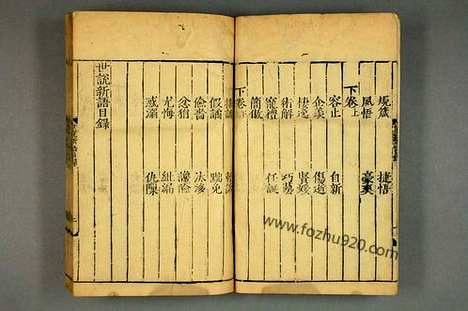 規箴 捷悟
夙悟 豪爽
下卷上
容止 自新
企羡 傷逝
棲逸 賢媛
術解 巧藝
寵禮 任誕
簡傲
下卷下
排調 輕詆
假譎 黜免
儉嗇 汰侈
忿狷 讒險
尤悔 紕漏
惑溺 仇隟
世說新語目錄
www.fozhu920.com